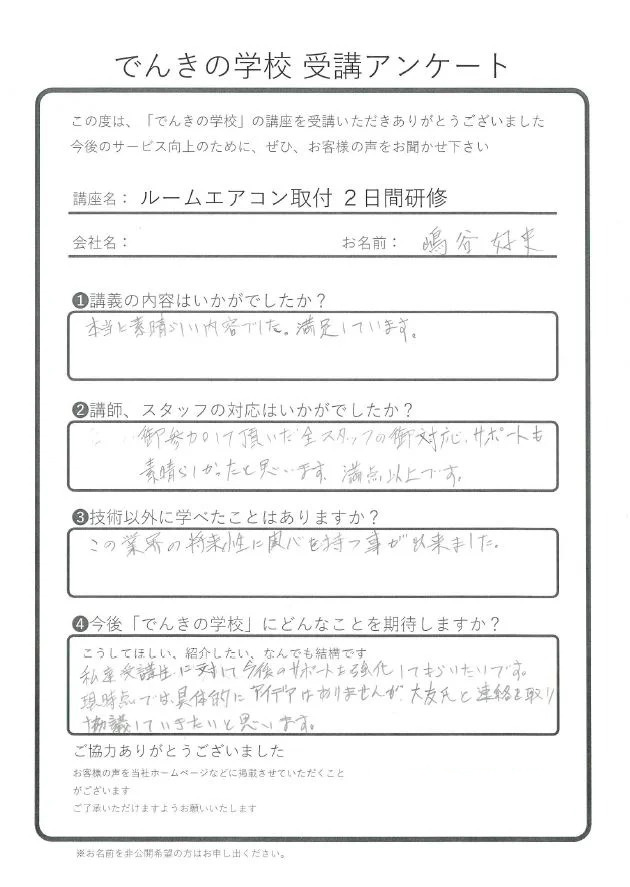 でんきの学校 受講アンケート
この度は、「でんきの学校」の講座を受講いただきありがとうございました
今後のサービス向上のために、ぜひ、お客様の声をお聞かせ下さい
講座名： ルームエアコン取付 2日間研修
会社名： お名前： 嶋谷 好吏
❶講義の内容はいかがでしたか？
本当に素晴らしい内容でした。満足しています。
❷講師、スタッフの対応はいかがでしたか？
御参加して頂いた全スタッフの御対応、サポートも
素晴らしかったと思います。満点以上です。
❸技術以外に学べたことはありますか？
この業界の将来性に関心を持つ事が出来ました。
❹今後「でんきの学校」にどんなことを期待しますか？
こうしてほしい、紹介したい、なんでも結構です
私達受講生に対して今後のサポートも強化してもらいたいです。
現時点では、具体的にアイデアはありませんが、大友氏と連絡を取り
協議していきたいと思います。
ご協力ありがとうございました
お客様の声を当社ホームページなどに掲載させていただくこと
がございます
ご了承いただけますようお願いいたします
※お名前を非公開希望の方はお申し出ください。